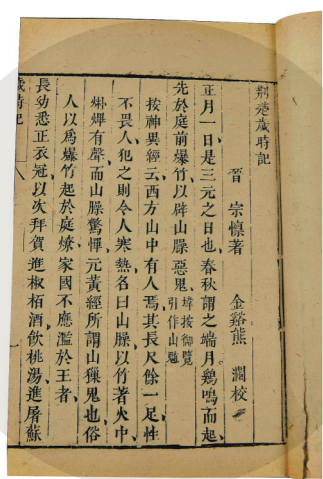 荊楚歲時記
晉 宗懍著 金谿熊 澗校
正月一日是三元之日也春秋謂之端月鷄鳴而起
先於庭前爆竹以辟山臊惡鬼
按御覽
引作山魈
按神異經云西方山中有人焉其長尺餘一足性
不畏人犯之則令人寒熱名曰山臊以竹著火中
烞熚有聲而山臊驚憚元黃經所謂山𤢖鬼也俗
人以爲爆竹起於庭燎家國不應濫於王者
長幼悉正衣冠以次拜賀進椒栢酒飲桃湯進屠蘇
歲時記